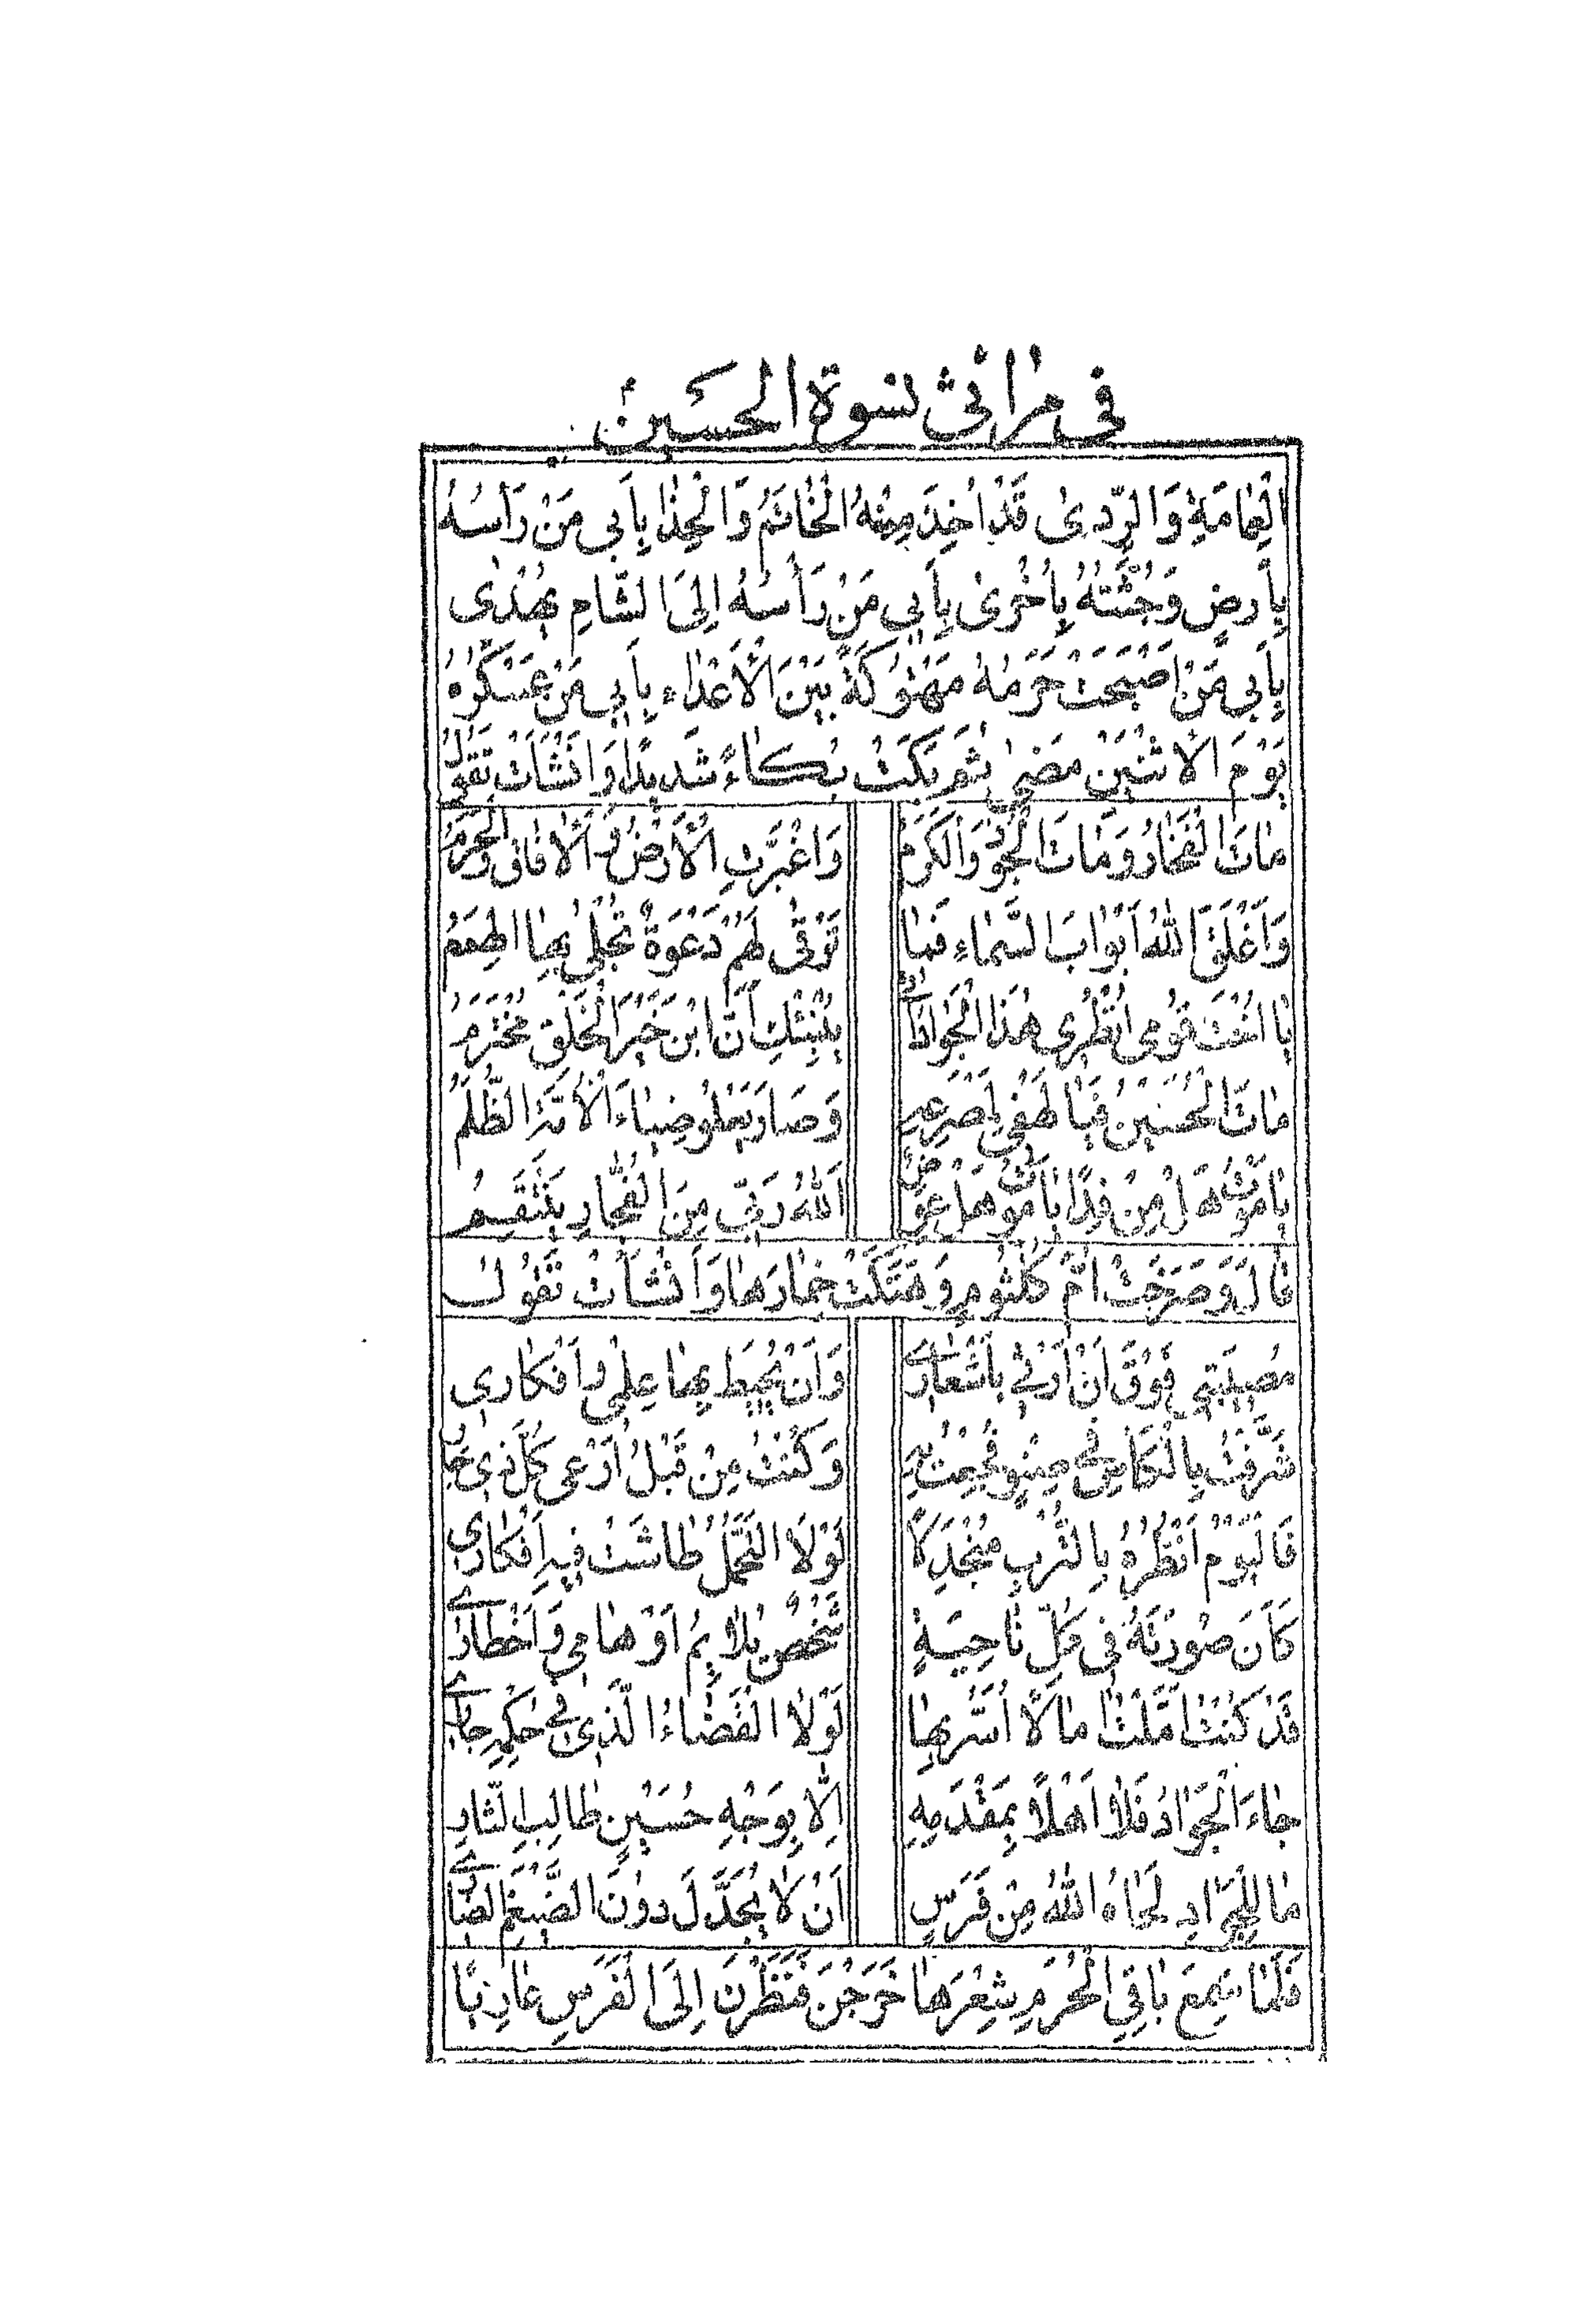 في مراثي نسوة الحسين
الْعِمَامَةِ وَالرِّدىٰ قَدْ اُخِذَ مِنْهُ الْخَاتَمُ وَالْحِذٰا بِأَبي مَنْ رَأْسُهُ
بِأَرضٍ وَجُثَّتُهُ بِاُخْرىٰ بِأَبي مَنْ رَأْسُهُ اِلَى الشّامِ يُهْدىٰ
بِأَبي مَنْ اَصْبَحَتْ حَرَمُهُ مَهْتُوكَةً بَيْنَ الْأَعْدٰاء بِأَبي مَنْ عَسْكَرُهُ
يَوْمَ الْاِثْنَيْنِ مَضىٰ ثُمَّ بَكَتْ بُكاءً شَديدًا وَاَنْشَأَتْ تَقُولُ
مٰاتَ الْفَخٰارُ وَمٰاتَ الْجُودُ وَالْكَرَمُ
وَاغْبَرَّتِ الْأَرْضُ وَالْاٰفاقُ وَالْحَرَمُ
وَاَغْلَقَ اللّٰهُ اَبْوٰابَ السَّمٰاءِ فَمٰا
تَرْقىٰ لَهُمْ دَعْوَةٌ تُجْلىٰ بِهٰا الْهِمَمُ
يٰا اُخْتَ قُومي انْظُري هٰذَا الْجَوٰادَ اَتىٰ
يُنْبِئْكِ اَنَّ ابْنَ خَيْرَ الْخَلْقِ مُخْتَرَمُ
مٰاتَ الْحُسَيْنُ فَيٰا لَهْفي لِمَصْرَعِهِ
وَصٰارَ يَعْلُو ضِيٰاءَ الْأُمَّةِ الظُّلَمُ
يٰا مَوْتُ هَلْ مِنْ فِدًا يٰا مَوْتُ هَلْ عِوَضٌ
اَللّٰهُ رَبّي مِنَ الْفُجّارِ يَنْتَقِمُ
قالَ وَصَرَخَتْ اُمُّ كُلْثُومٍ وَهَتَكَتْ خِمٰارَهٰا وَاَنْشَأَتْ تَقُولُ
مُصيبَتي فَوْقَ اَنْ اَرْثي بِاَشْعٰاري
وَاَنْ يُحيطَ بِهٰا عِلْمي وَاَفْكاري
شَرَّفْتُ بِالْكَأْسِ في صِنْوٍ فُجِعْتُ بِهِ
وَكُنْتُ مِنْ قَبْلُ اَرْعى كُلَّ ذي جٰارِ
فَالْيَوْمَ اَنْظُرُهُ بِالتُّرْبِ مُنْجَدِلًا
لَوْلَا التَّحَمُّلُ طٰاشَتْ فيهِ اَفْكٰاري
كَأَنَ صُورَتَهُ في كُلِّ نٰاحِيَةٍ
شَخْصٌ يُلائِمُ اَوْهٰامي وَاَخْطٰاري
قَدْ كُنْتُ اَمَّلْتُ اٰمٰالًا اُسَرُّ بِهٰا
لَوْلَا الْقَضٰاءُ الَّذي في حُكْمِهِ جٰاري
جٰاءَ الْجَوٰادُ فَلٰا اَهْلًا بِمَقْدَمِهِ
اِلّٰا بِوَجْهِ حُسَيْنٍ طٰالِبِ الثّارِ
مٰا لِلْجَوٰادِ لَحٰاهُ اللّٰهُ مِنْ فَرَسٍ
اَنْ لٰا يُجَدَّلَ دُونَ الضَّيْغَمِ الضّٰاري
فَلَمّٰا سَمِعَ بٰاقِي الْحُرَمِ شِعْرَهٰا خَرَجْنَ فَنَظَرْنَ اِلَى الْفَرَسِ عٰارِيًا